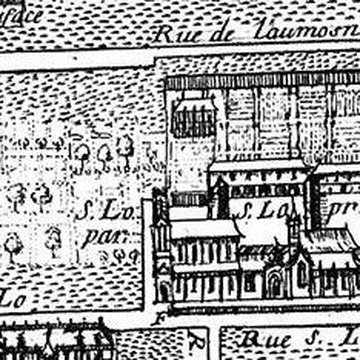 Rue de l'aumosn
S. Lo par.
S. Lo
pr
Lo
F
R
Rue S. L